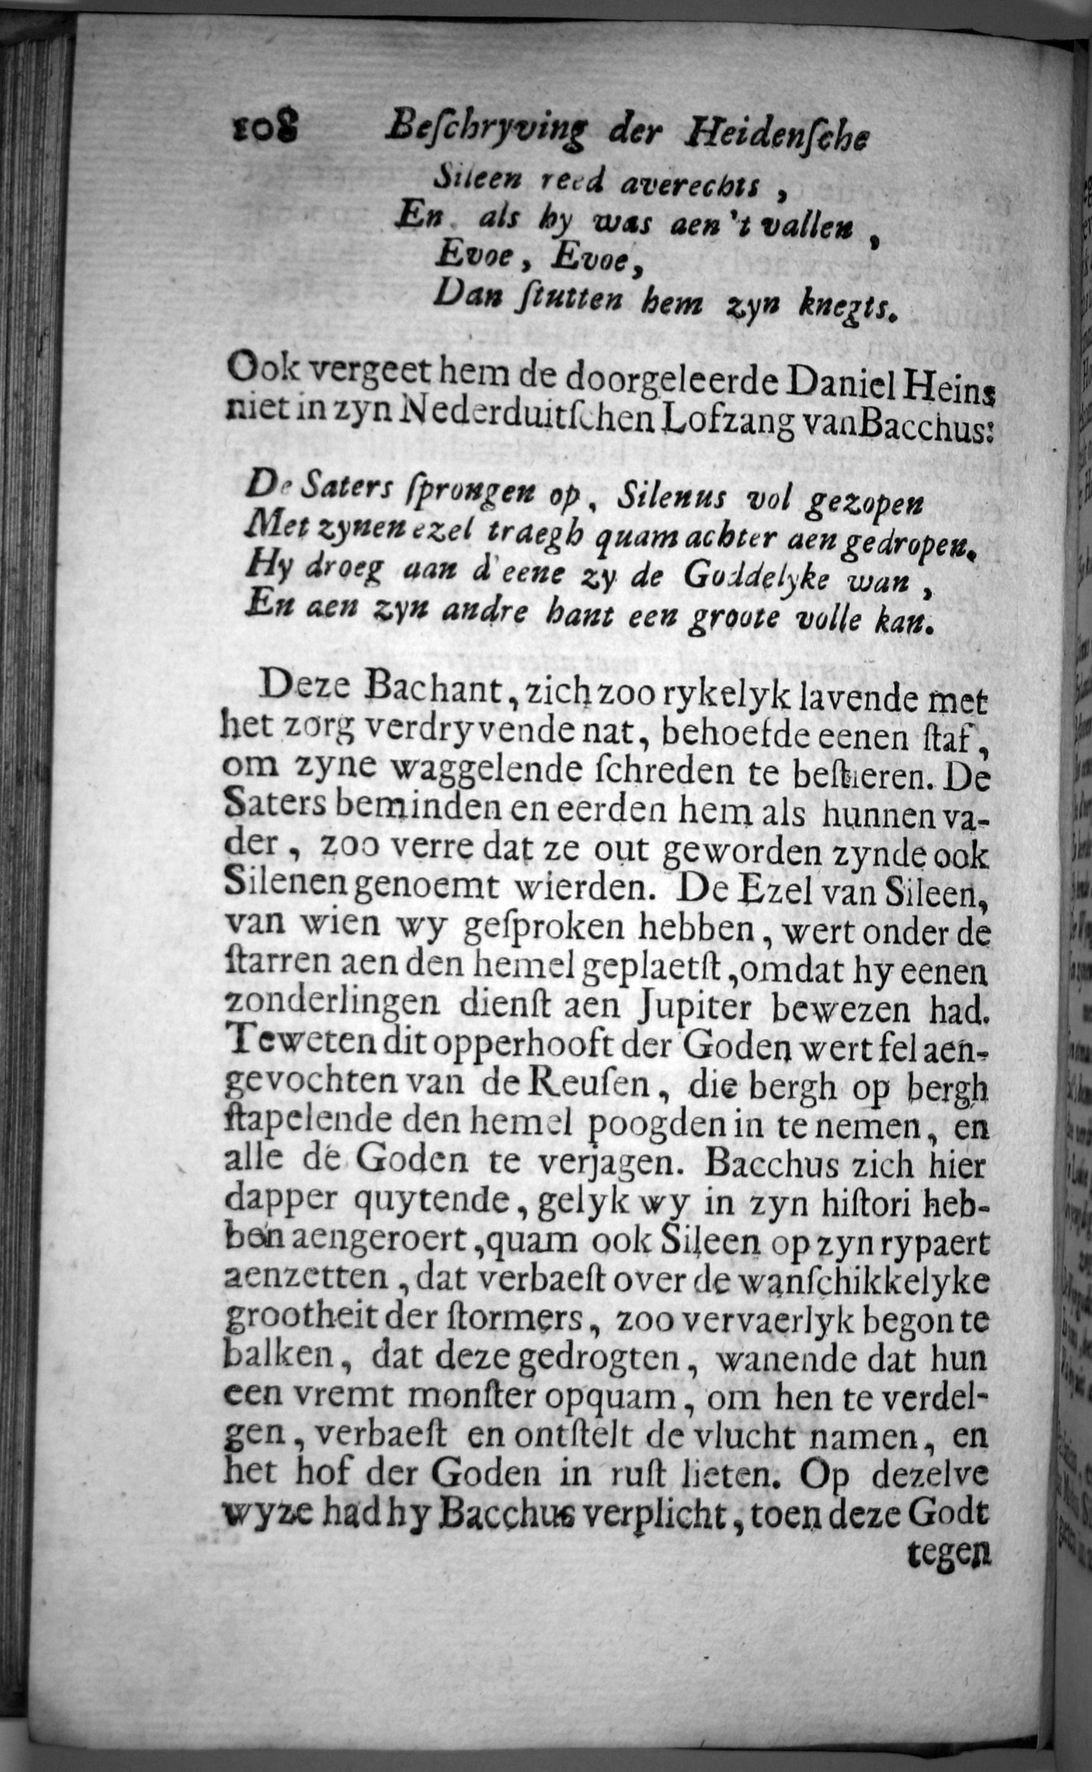 108 Beſchryving der Heidenſche
Sileen reed averechts ,
En als hy was aen 't vallen ,
Evoe , Evoe,
Dan ſtutten hem zyn knegts.
Ook vergeet hem de doorgeleerde Daniel Heins
niet in zyn Nederduitſchen Lofzang van Bacchus:
De Saters ſprongen op, Silenus vol gezopen
Met zynen ezel traegh quam achter aen gedropen.
Hy droeg aan d'eene zy de Goddelyke wan ,
En aen zyn andre hant een groote volle kan.
Deze Bachant, zich zoo rykelyk lavende met
het zorg verdryvende nat, behoefde eenen ſtaf,
om zyne waggelende ſchreden te beſtieren. De
Saters beminden en eerden hem als hunnen va-
der, zoo verre dat ze out geworden zynde ook
Silenen genoemt wierden. De Ezel van Sileen,
van wien wy geſproken hebben, wert onder de
ſtarren aen den hemel geplaetſt, omdat hy eenen
zonderlingen dienſt aen Jupiter bewezen had.
Teweten dit opperhooft der Goden wert fel aen-
gevochten van de Reuſen, die bergh op bergh
ſtapelende den hemel poogden in te nemen, en
alle de Goden te verjagen. Bacchus zich hier
dapper quytende, gelyk wy in zyn hiſtori heb-
ben aengeroert, quam ook Sileen op zyn rypaert
aenzetten, dat verbaeſt over de wanſchikkelyke
grootheit der ſtormers, zoo vervaerlyk begon te
balken, dat deze gedrogten, wanende dat hun
een vremt monſter opquam, om hen te verdel-
gen, verbaeſt en ontſtelt de vlucht namen, en
het hof der Goden in ruſt lieten. Op dezelve
wyze had hy Bacchus verplicht, toen deze Godt
tegen